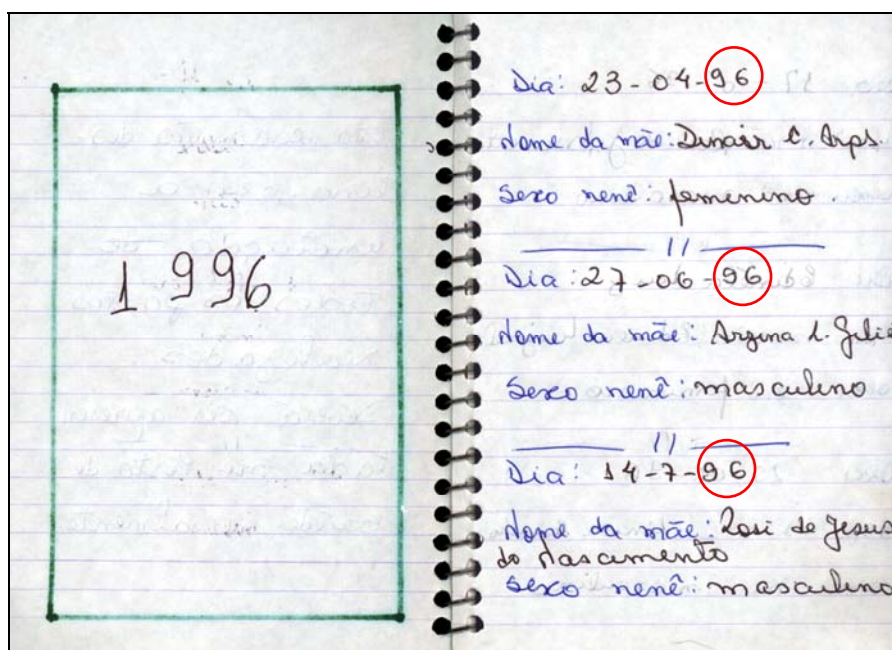 1996
Dia: 23-04-96
Nome da mãe: Dinair C. Arps.
Sexo nenê: femenino.
11
Dia: 27-06-96
Nome da mãe: Argena L. Julio
Sexo nenê: masculino
11
Dia: 14-7-96
Nome da mãe: Rosi de Jesus
do Nascimento
Sexo nenê: masculino